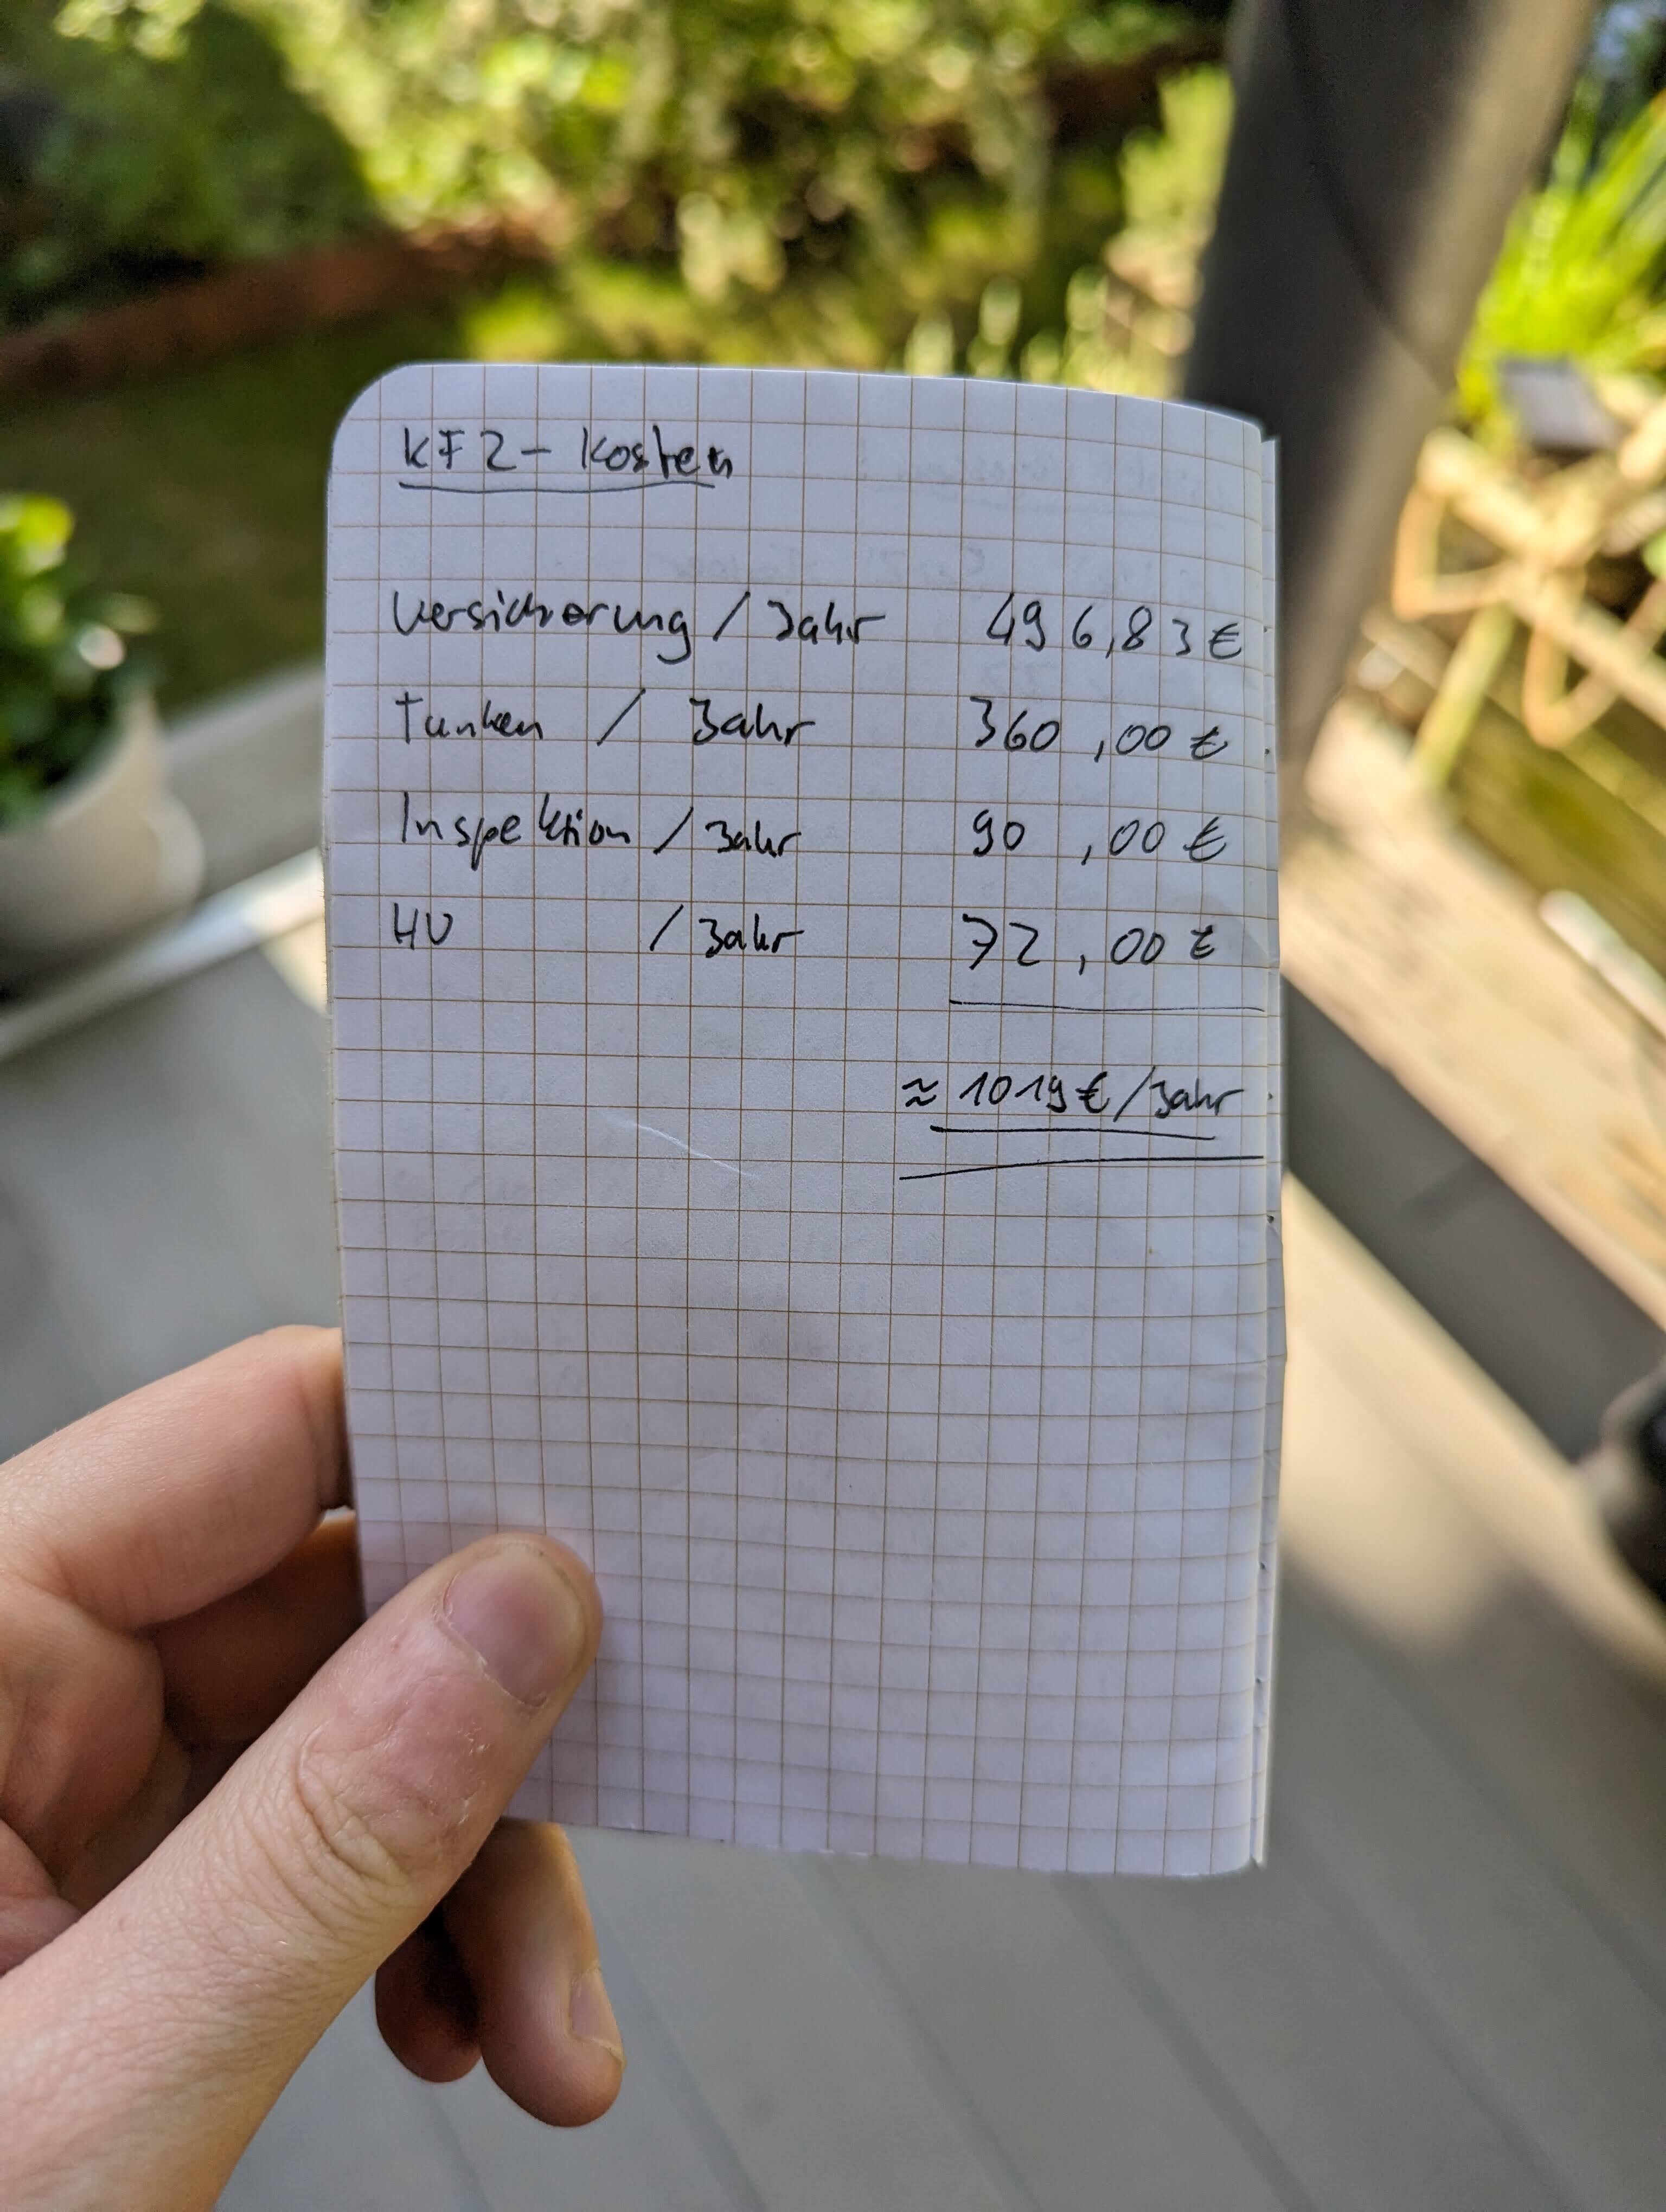 KFZ-Kosten
Versicherung / Jahr 496,83€
Tanken / Jahr 360,00€
Inspektion / Jahr 90,00€
HU / Jahr 72,00€
≈ 1019€/Jahr